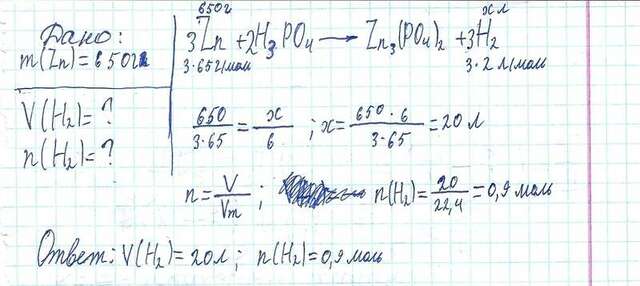 Дано:
m(Zn)=650г
V(H₂)=?
n(H₂)=?
650г х л
3Zn + 2H₃PO₄ → Zn₃(PO₄)₂ + 3H₂
3·65г/моль 3·2 л/моль
650/3·65 = х/6 ; х = 650·6/3·65 = 20 л
n = V/Vm ; n(H₂) = 20/22,4 = 0,9 моль
Ответ: V(H₂)=20л ; n(H₂)=0,9 моль